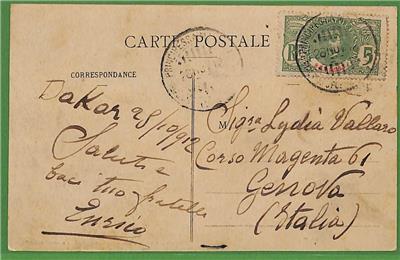 CARTE POSTALE
CORRESPONDANCE
Dakar 25/10/912
Saluti e
baci tuo fratello
Enrico
M
Sigra Lydia Vallaro
Corso Magenta 61
Genova
(Italia)
PRINCIPESSA
5